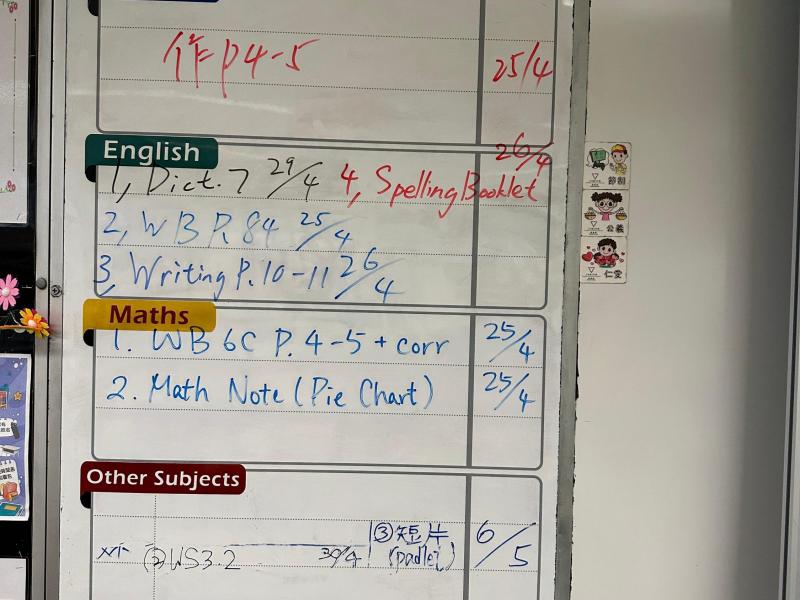 作² p4-5 25/4
English
1, Dict. 7 29/4 4, Spelling Booklet 26/4
2, WB P. 84 25/4
3, Writing P. 10-11 26/4
Maths
1. WB 6C P. 4-5 + corr 25/4
2. Math Note (Pie Chart) 25/4
Other Subjects
② WS3.2 30/4 ③短片 6/5
(padlet)
節制
公義
仁愛